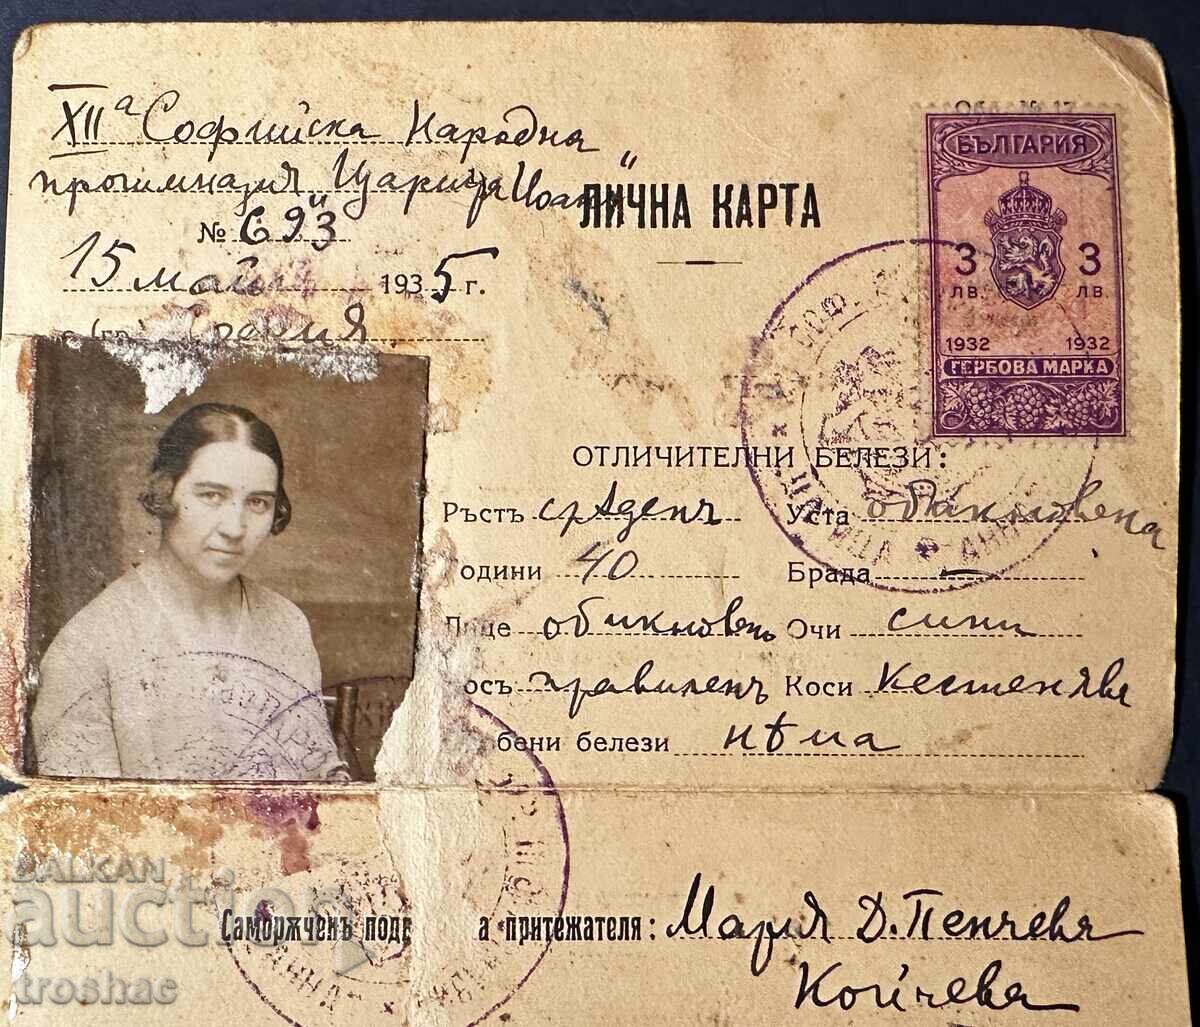 XIIа Софийска Народна
прогимназия „Царица Иоанна"
ЛИЧНА КАРТА
№ 693
15 май 1935 г.
София
БЪЛГАРИЯ
3 3
ЛВ. ЛВ.
1932 1932
ГЕРБОВА МАРКА
ОТЛИЧИТЕЛНИ БЕЛЕЗИ:
Ръстъ срѣденъ Уста обикновена
Години 40 Брада —
Лице обикновено Очи сини
Носъ правиленъ Коси кестеняви
белези нѣма
Саморѫченъ притежателя: Мария Д. Пенчева
Койчева
BALKAN
auction
troshac